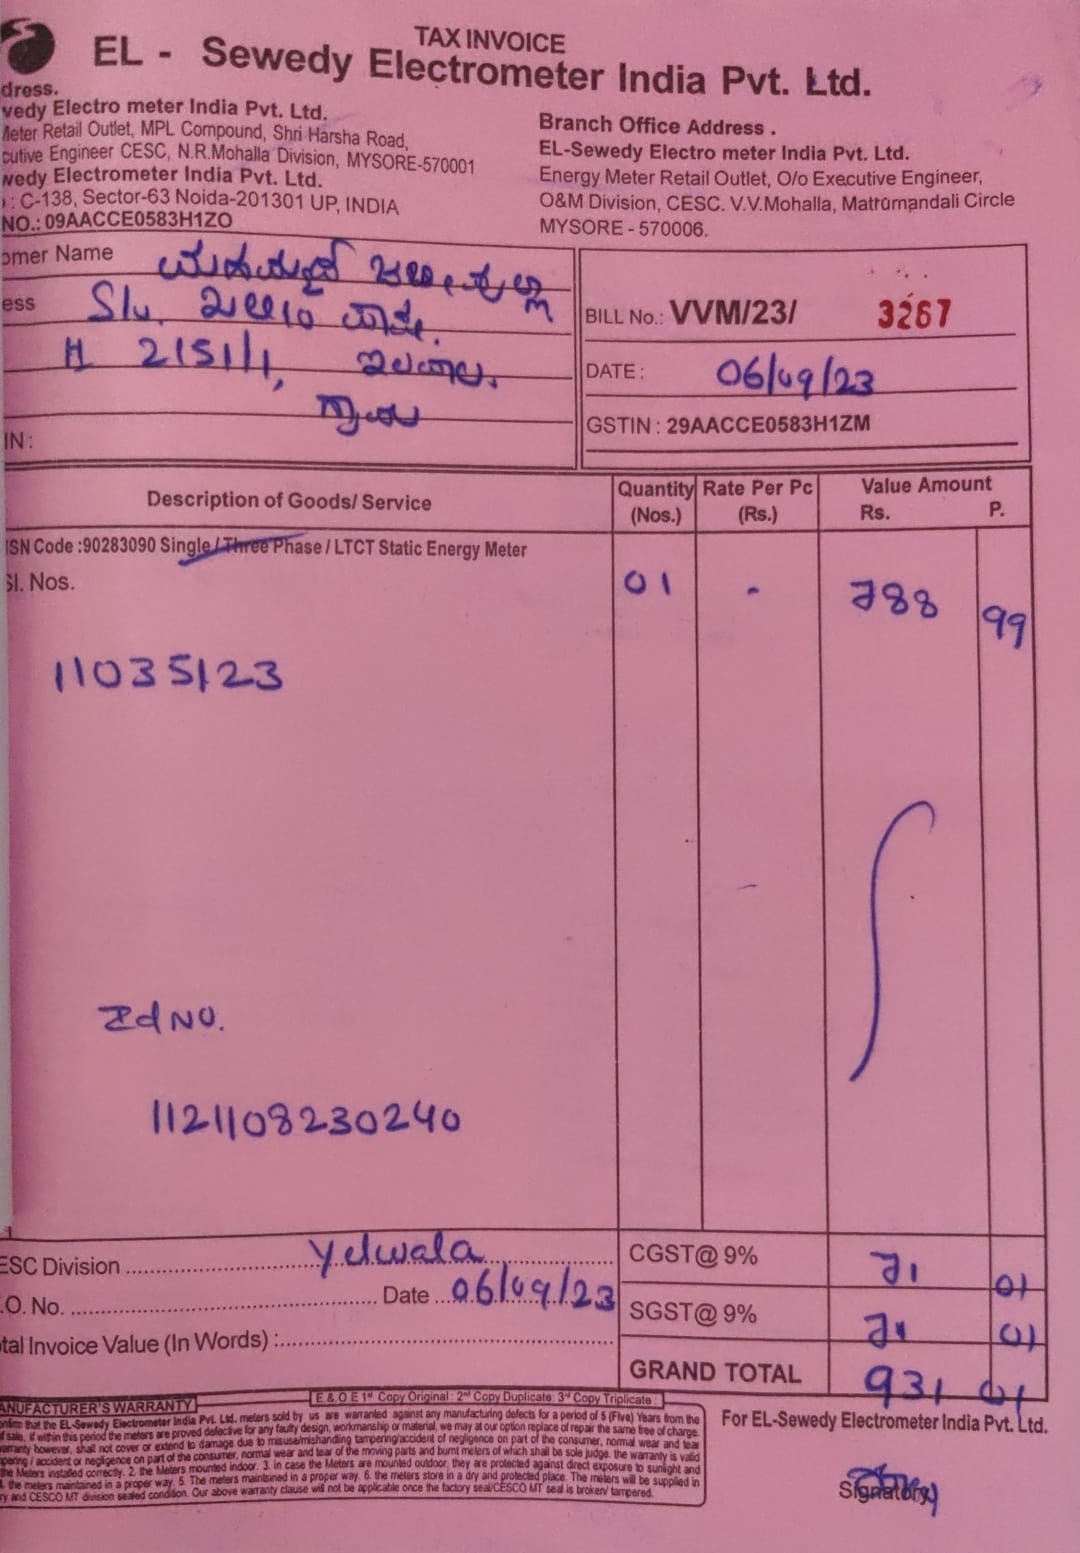 TAX INVOICE
EL - Sewedy Electrometer India Pvt. Ltd.
dress.
wedy Electro meter India Pvt. Ltd.
Meter Retail Outlet, MPL Compound, Shri Harsha Road,
cutive Engineer CESC, N.R.Mohalla Division, MYSORE-570001
wedy Electrometer India Pvt. Ltd.
: C-138, Sector-63 Noida-201301 UP, INDIA
NO.: 09AACCE0583H1ZO
Branch Office Address .
EL-Sewedy Electro meter India Pvt. Ltd.
Energy Meter Retail Outlet, O/o Executive Engineer,
O&M Division, CESC. V.V.Mohalla, Matrumandali Circle
MYSORE - 570006.
omer Name
ess S/o.
H 2151/1,
IN :
BILL No.: VVM/23/ 3267
DATE : 06/09/23
GSTIN : 29AACCE0583H1ZM
Description of Goods/ Service Quantity (Nos.) Rate Per Pc (Rs.) Value Amount Rs. P.
ISN Code :90283090 Single / Three Phase / LTCT Static Energy Meter
Sl. Nos. 01 - 788 99
11035123
NO.
1121108230240
ESC Division Yelwala CGST@ 9% 71 01
.O. No. Date 06/09/23 SGST@ 9% 71 01
tal Invoice Value (In Words) :
GRAND TOTAL 931 01
E & O E 1st Copy Original : 2nd Copy Duplicate: 3rd Copy Triplicate :
ANUFACTURER'S WARRANTY
onfirm that the EL-Sewedy Electrometer India Pvt. Ltd. meters sold by us are warranted against any manufacturing defects for a period of 5 (Five) Years from the
f sale, if within this period the meters are proved defective for any faulty design, workmanship or material, we may at our option replace of repair the same free of charge.
arranty however, shall not cover or extend to damage due to misuse/mishandling tampering/accident of negligence on part of the consumer, normal wear and tear
pering / accident or negligence on part of the consumer, normal wear and tear of the moving parts and burnt meters of which shall be sole judge. the warranty is valid
the Meters installed correctly. 2. the Meters mounted indoor. 3. in case the Meters are mounted outdoor, they are protected against direct exposure to sunlight and
the meters maintained in a proper way. 5. The meters maintsined in a proper way. 6. the meters store in a dry and protected place. The meters will be supplied in
ry and CESCO MT division sealed condition. Our above warranty clause will not be applicable once the factory seal/CESCO MT seal is broken/ tampered.
For EL-Sewedy Electrometer India Pvt. Ltd.
Signatory